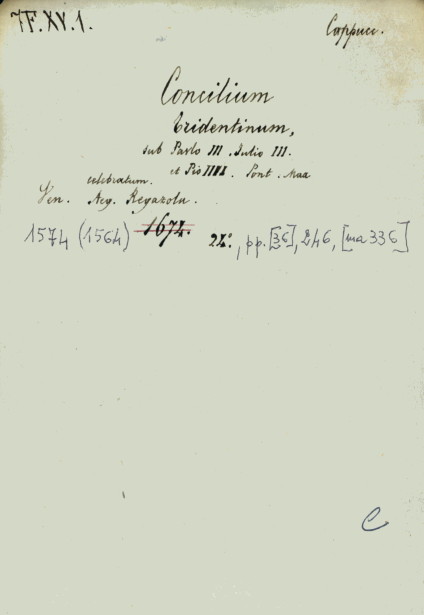 7F.XV.1.
Cappucc.
Concilium
Tridentinum,
sub Paulo III. Julio III.
et Pio IIII. Pont. Max
celebratum.
Ven. Aeg. Regazola.
1574 (1564) 1674. 24°., pp. [36], 246, [ma 336]
C